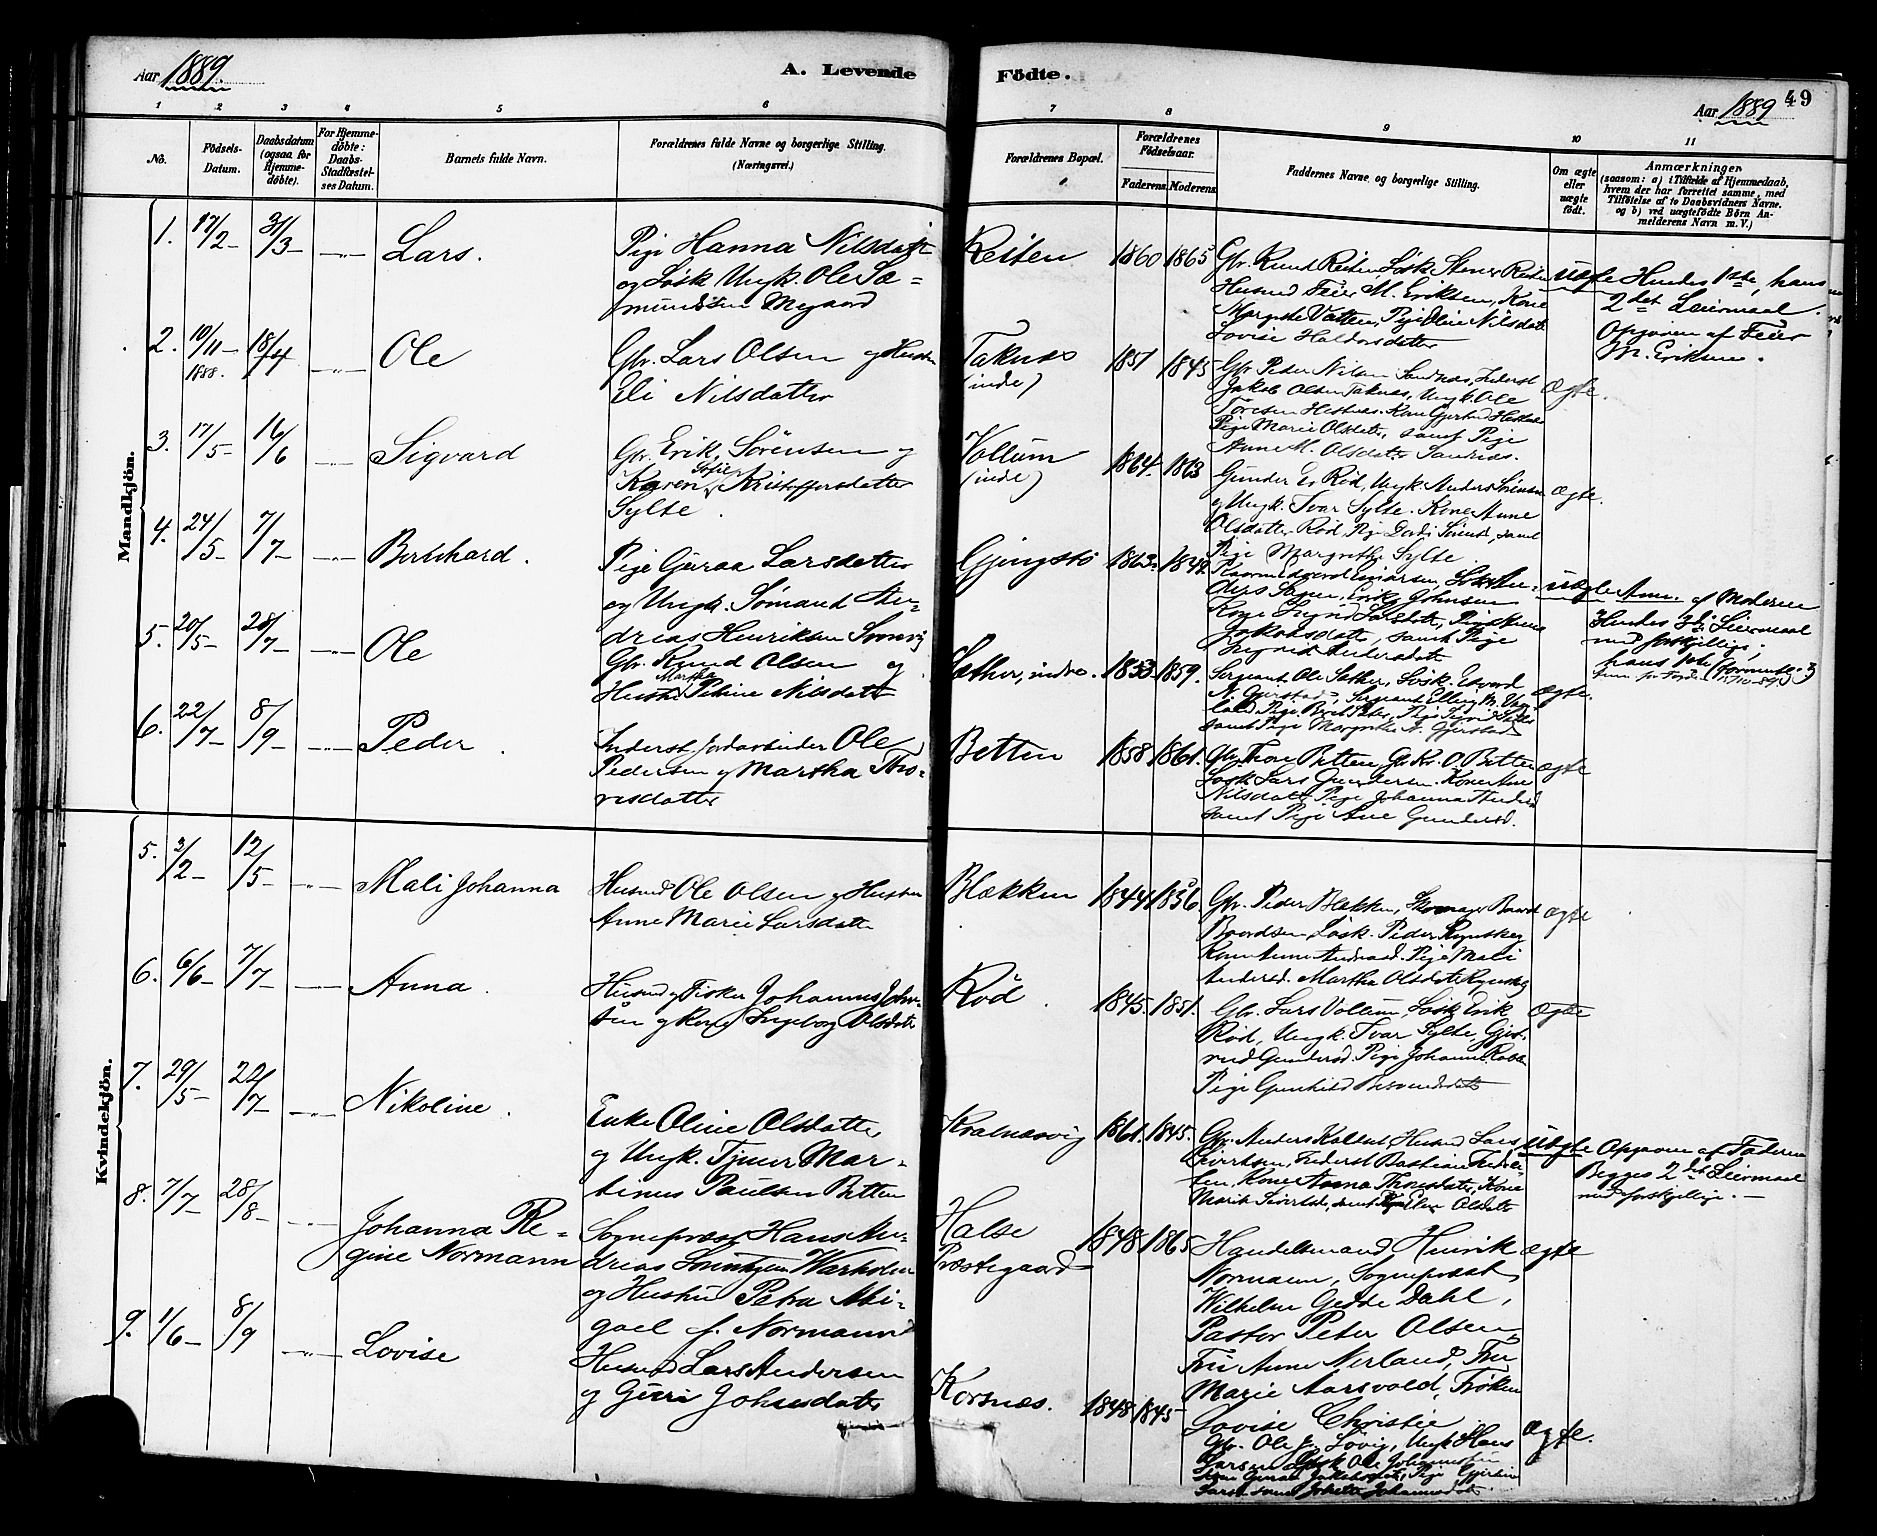 Aar 1889.
A. Levende
Födte.
Aar 1889
49
1 2 3 4 5 6 7 8 9 10 11
No.
Födsels-
Datum.
Daabsdatum
(ogsaa for
Hjemme-
döbte).
For Hjemme-
döbte:
Daabs-
Stadfæstel-
ses Datum.
Barnets fulde Navn.
Forældrenes fulde Navne og borgerlige Stilling.
(Næringsvei.)
Forældrenes Bopæl.
Forældrenes
Födselsaar.
Faderens.
Moderens.
Faddernes Navne og borgerlige Stilling.
Om ægte
eller
uægte
födt.
Anmærkninger
(saasom: a) i Tilfælde af Hjemmedaab,
hvem der har forrettet samme, med
Tilföielse af to Daabsvidners Navne,
og b) ved uægtefödte Börn An-
melderens Navn m. V.)
Mandkjön.
1. 17/2 31/3 Lars.
Pige Hanna Nilsdatt
og Løsk Ungk. Ole Sæ=
mundsen Megaard
Reiten 1860 1865
Gbr. Knud Reiten Løsk. Stener Reiten
Husmd Feier M. Eriksen, Kone
Margrete Vatten, Pige Oline Nilsdat
Lovise Haldorsdatter
uægte
Hendes 1ste, hans
2det Leiermaal.
Opgiven af Feier
M. Eriksen.
2. 10/11 1888. 18/4 Ole
Gbr. Lars Olsen og Hustru
Eli Nilsdatter
Taknes
(inde)
1851 1845
Gbr. Peder Nilsen Sandnes, Inderst
Jakob Olsen Taknes, Ungk. Ole
Toresen Hestnes. Kone Gjertrud
Pige Marie Olsdatter, samt Pige
Anne M. Olsdatter Sandnes.
ægte.
3. 17/5 16/6 Sigvard
Gbr. Erik Sörensen og
Karen Sofie Kristoffersdatter
Sylte.
Vollum
(inde)
1864. 1863
Gunder Rød, Ungk. Anders Sörensen
og Ungk. Tvar Sylte. Kone Anne
Olsdatter Rød, Pige samt
Pige Margrethe Sylte
ægte.
4. 24/5 7/7 Bernhard.
Pige Guraa Larsdatter
og Ungk. Sømand An-
dreas Henriksen
Gjengstö 1863. 1849.
Kone Sigrid
Jakobsdatter, samt Pige
Ingrid Andersdatt
uægte
Anm. af Moderen
Hendes 3die Leiermaal
med forskjellige;
hans 1ste
5. 20/5 28/7 Ole
Gbr. Knud Olsen og
Hustru Martha Petrine Nilsdatt
Sæther, indre. 1853 1859.
Sergeant Ole Sæther, Løsk. Edvard
N. Gjerstad, Sergeant
samt Pige Margrethe N. Gjerstad
ægte.
6. 22/7 8/9 Peder.
Inderst Jordarbeider Ole
Pedersen og Martha Tho-
resdatter
Betten 1858 1861.
Gbr. Thore Betten, Gbr. Kr. O. Betten
Løsk. Lars Gundersen. Kone Ane
Nilsdatter, Pige Johanna Andersd
samt Pige Ane Gundersd.
ægte
Kvindekjön.
5. 2/2 12/5 Mali Johanna
Husmd Ole Olsen og Hustru
Anne Marie Larsdatter
Blækken 1844 1856.
Gbr. Peder Blækken, Skomager Baard
Baardsen, Løsk. Peder
Kone Anne Pige Mali
Andersd. Martha Olsdatter
ægte
6. 6/6 7/7 Anna.
Husmd og Fisker Johannes John-
sen og Kone Ingeborg Olsdatter
Rød. 1845. 1851.
Gbr. Lars Vollum Løsk. Erik
Rød, Ungk. Tvar Sylte, Gjer-
trud Gundersd. Pige Johanne
Pige Gunhild
ægte
7. 29/5 22/7 Nikoline.
Enke Oline Olsdatter
og Ungk. Tjener Mar-
tinus Paulsen Betten
1861. 1845.
Gbr. Anders Husmd Lars
Sivertsen, Inderst Bastian
sen, Kone Anna Thoresdatter, Kone
Marit Sivertsd., samt Olsdatt
uægte
Opgiven af Faderen
Begges 2det Leiermaal
med forskjellige.
8. 7/7 28/8
Johanna Re-
gine Normann
Sogneprest Hans An-
dreas
og Hustru Petra Abi-
gael f. Normann
Halse
Præstegaard
1848 1865
Handelsmand Henrik
Normann, Sogneprest
Wilhelm Gedde Dahl,
Pastor Peter Olsen,
Fru Anne Nerland, Fru
Marie Aarsvold, Frøken
Lovise Christie
ægte
9. 1/6 8/9 Lovise
Husmd Lars Andersen
og Guri Johnsdatter
Korsnæs. 1848 1845
Gbr. Ole J. Ungk. Hans
Larsen Løsk. Ole Johannesen
Kone Guraa Jakobsdatt, Pige
samt Johannesdatt
ægte.